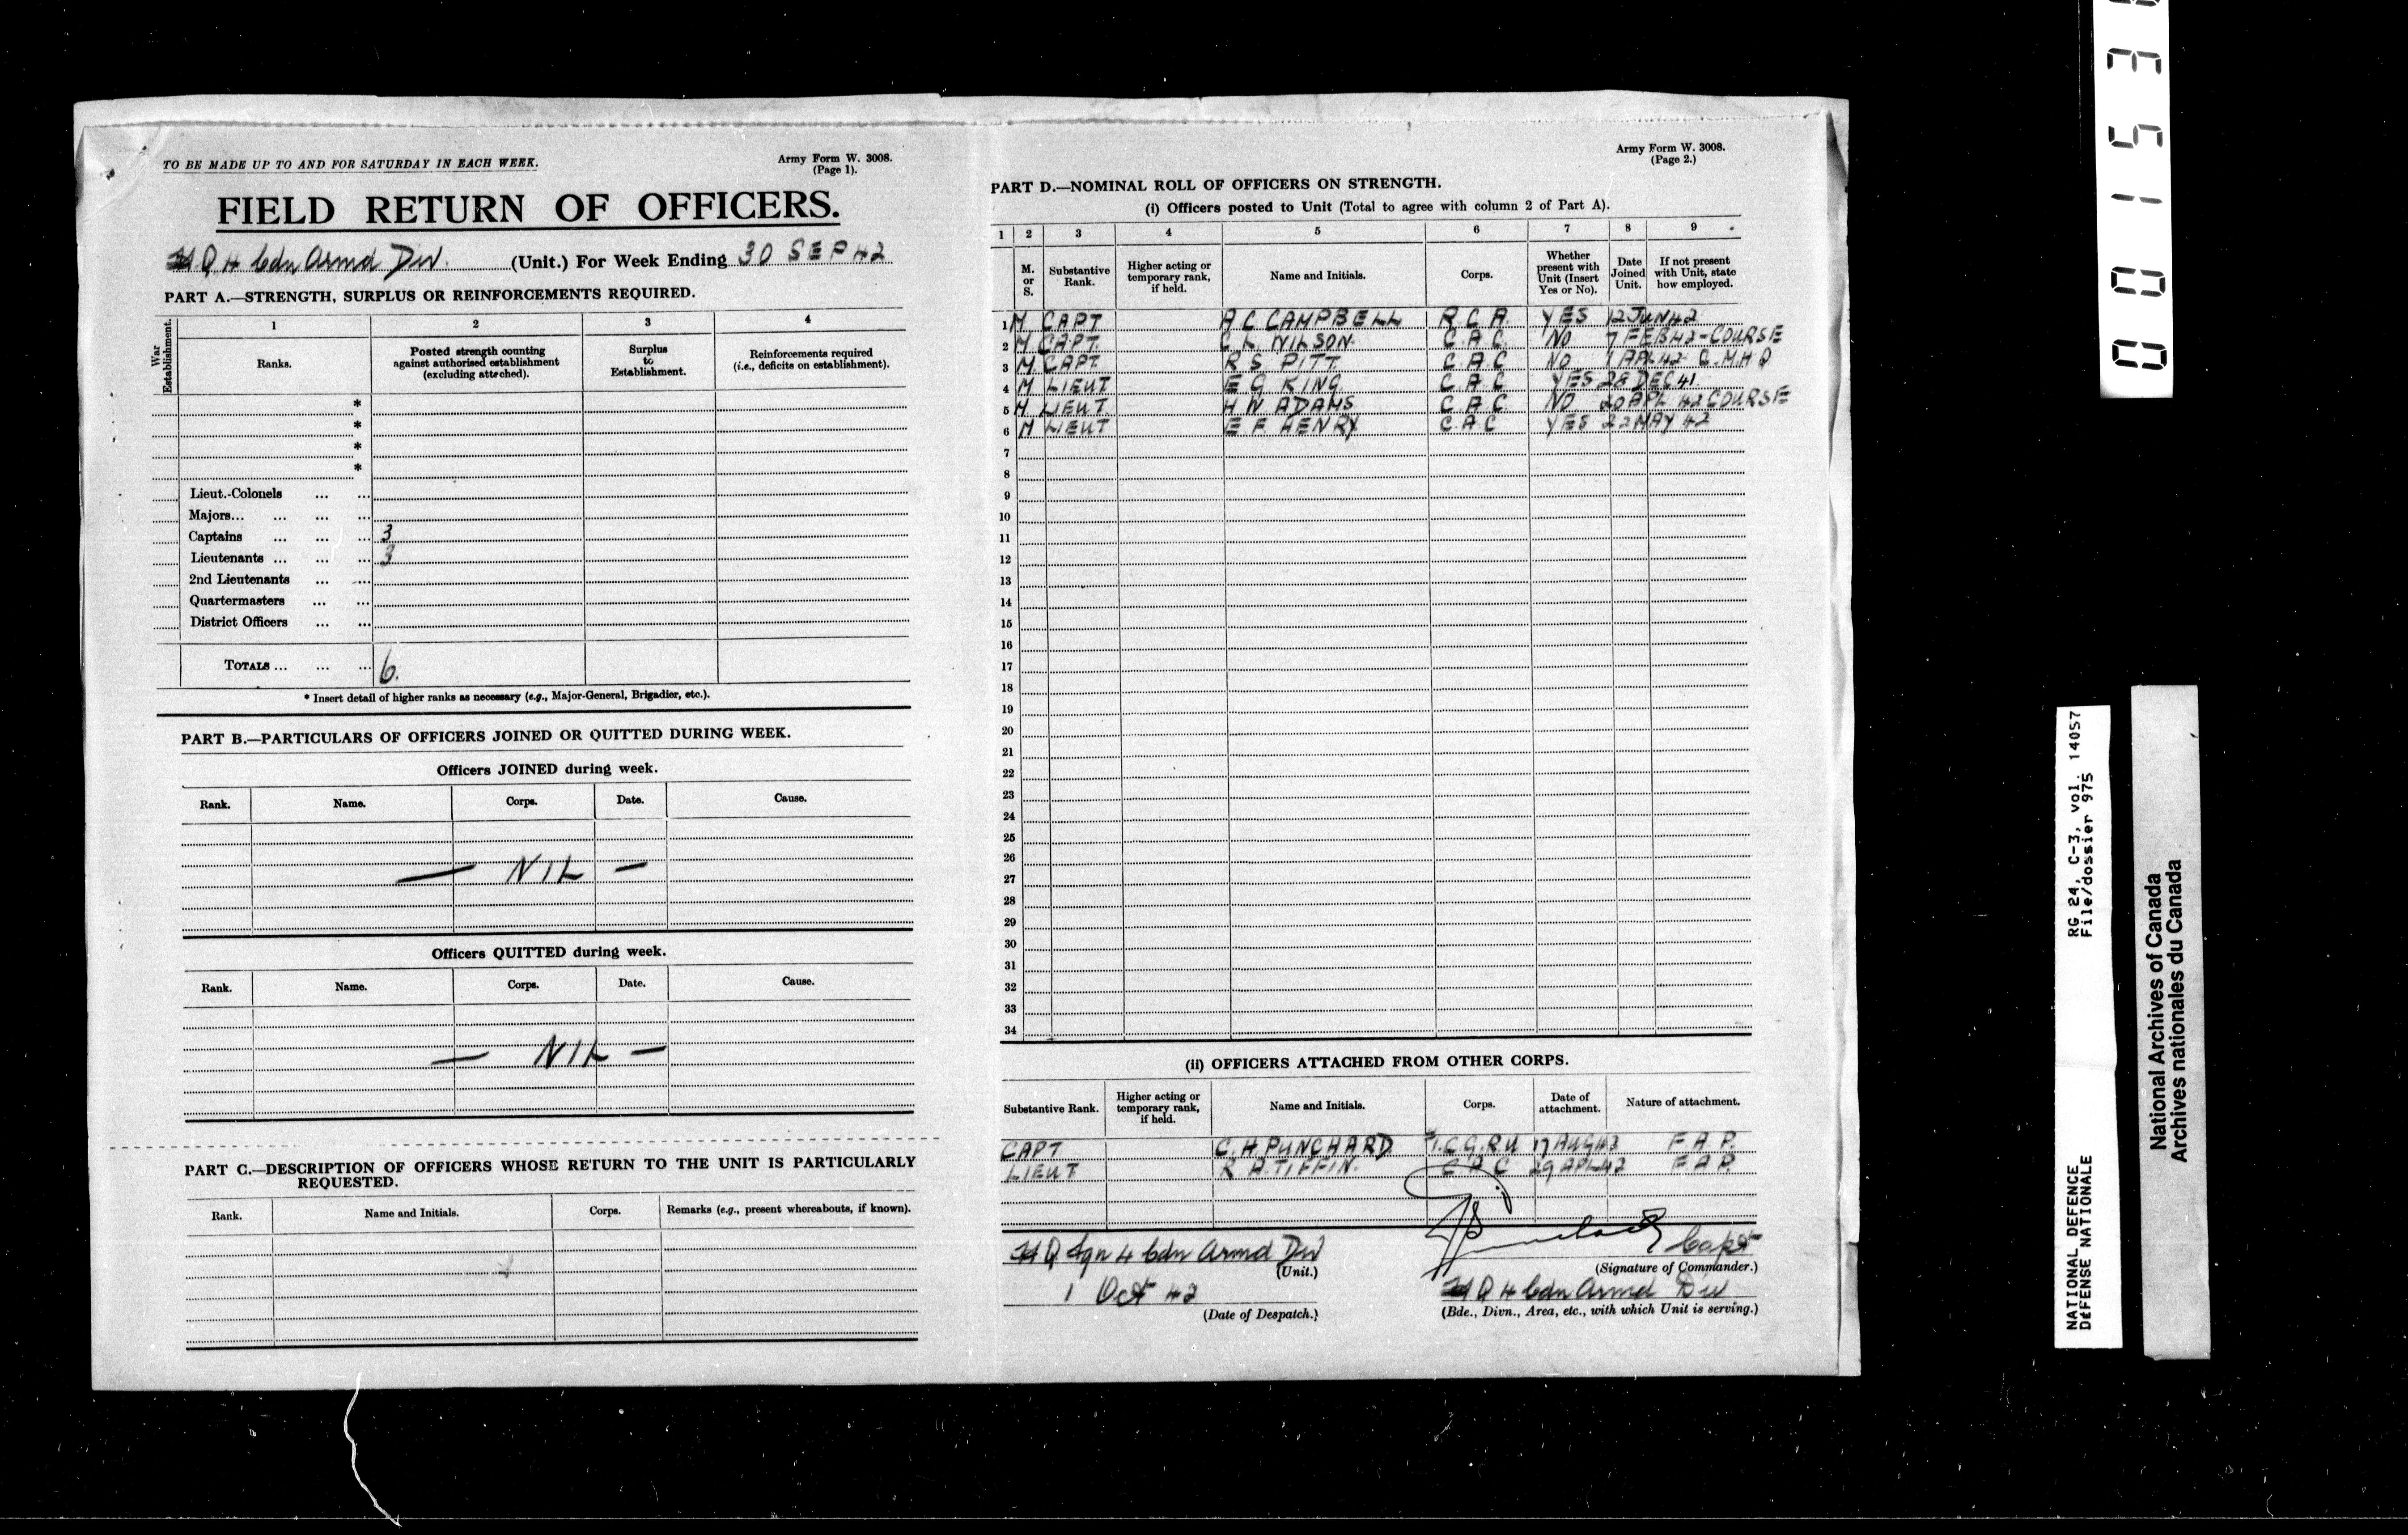 TO BE MADE UP TO AND FOR SATURDAY IN EACH WEEK.
Army Form W. 3008.
(Page 1).
FIELD RETURN OF OFFICERS.
HQ 4 Cdn Armd Div. (Unit.) For Week Ending 30 SEP 42
PART A.—STRENGTH, SURPLUS OR REINFORCEMENTS REQUIRED.
War Establishment.
1 2 3 4
Ranks. Posted strength counting against authorised establishment (excluding attached). Surplus to Establishment. Reinforcements required (i.e., deficits on establishment).
*
*
*
*
Lieut.-Colonels ... ...
Majors... ... ... ...
Captains ... ... ... 3
Lieutenants ... ... ... 3
2nd Lieutenants ... ...
Quartermasters ... ...
District Officers ... ...
TOTALS ... ... ... 6.
* Insert detail of higher ranks as necessary (e.g., Major-General, Brigadier, etc.).
PART B.—PARTICULARS OF OFFICERS JOINED OR QUITTED DURING WEEK.
Officers JOINED during week.
Rank. Name. Corps. Date. Cause.
— NIL —
Officers QUITTED during week.
Rank. Name. Corps. Date. Cause.
— NIL —
PART C.—DESCRIPTION OF OFFICERS WHOSE RETURN TO THE UNIT IS PARTICULARLY
REQUESTED.
Rank. Name and Initials. Corps. Remarks (e.g., present whereabouts, if known).
Army Form W. 3008.
(Page 2.)
PART D.—NOMINAL ROLL OF OFFICERS ON STRENGTH.
(i) Officers posted to Unit (Total to agree with column 2 of Part A).
1 2 3 4 5 6 7 8 9
M. or S. Substantive Rank. Higher acting or temporary rank, if held. Name and Initials. Corps. Whether present with Unit (Insert Yes or No). Date Joined Unit. If not present with Unit, state how employed.
1 M CAPT A C CAMPBELL R C A YES 12 JUN 42
2 M CAPT C K WILSON C A C NO 7 FEB 42 - COURSE
3 M CAPT R S PITT C A C NO 1 APL 42 C.M.H.Q
4 M LIEUT E G KING C A C YES 28 DEC 41
5 M LIEUT H W ADAMS C A C NO 20 APL 42 COURSE
6 M LIEUT E F HENRY C A C YES 22 MAY 42
7
8
9
10
11
12
13
14
15
16
17
18
19
20
21
22
23
24
25
26
27
28
29
30
31
32
33
34
(ii) OFFICERS ATTACHED FROM OTHER CORPS.
Substantive Rank. Higher acting or temporary rank, if held. Name and Initials. Corps. Date of attachment. Nature of attachment.
CAPT C. H PUNCHARD 1.C.G.R.U 17 AUG 42 F A P.
LIEUT R A. TIFFIN. C A C 29 APL 42 F A P.
HQ Sqn 4 Cdn Armd Div
(Unit.)
Capt
(Signature of Commander.)
1 Oct 42
(Date of Despatch.)
HQ 4 Cdn Armd Div
(Bde., Divn., Area, etc., with which Unit is serving.)
RG 24, C-3, vol. 14057
File/dossier 975
NATIONAL DEFENCE
DÉFENSE NATIONALE
National Archives of Canada
Archives nationales du Canada